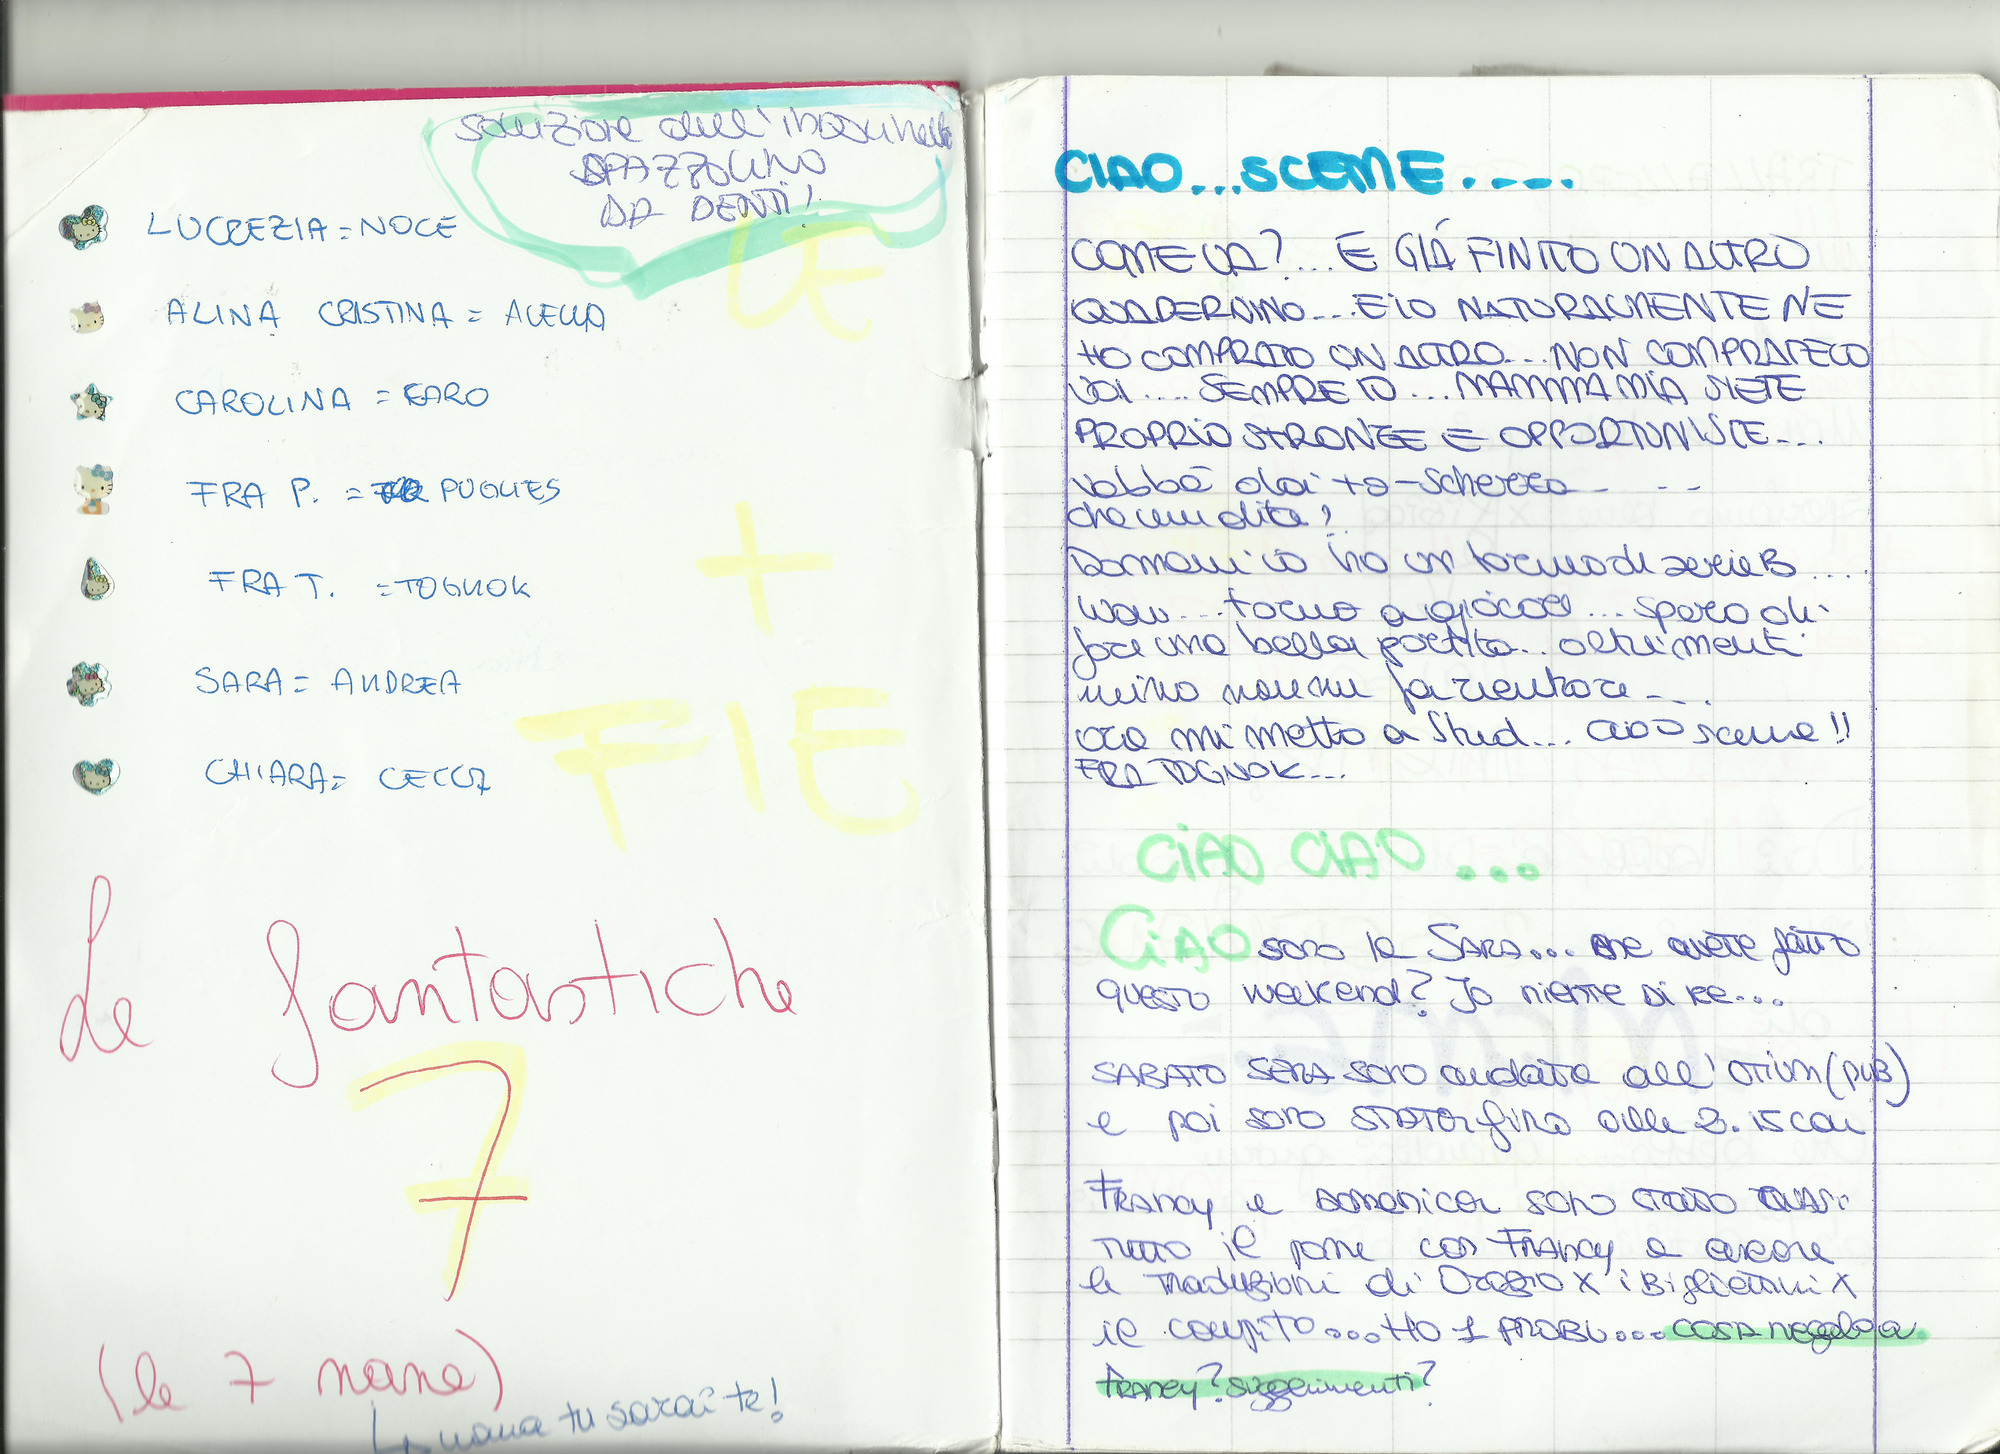 soluzione dell'indovinello
SPAZZOLINO
DA DENTI!
LUCREZIA = NOCE
ALINA CRISTINA = ACELLA
CAROLINA = CARO
FRA P. = PUGLIES
FRA T. = TOGNOK
SARA = ANDREA
CHIARA = CECC7
LE
+
FIE
Le fantastiche
7
(le 7 nane)
La nana tu sarai te!
CIAO...SCEME....
COME VA?...E GIÁ FINITO UN ALTRO
QUADERNINO...E IO NATURALMENTE NE
HO COMPRATO UN ALTRO...NON COMPRATELO
VOI....SEMPRE IO...MAMMA MIA SIETE
PROPRIO STRONZE E OPPORTUNISTE...
vabbè dai to-scherzo...
che mi dite?
Domani io ho un torneo di serie B...
wow...torno a giocare...spero di
fare una bella partita..altrimenti
mino non mi fa rientrare...
ora mi metto a stud...ciao sceme!!
FRA TOGNOK...
CIAO CIAO...
CIAO sono la SARA... che avete fatto
questo weekend? Io niente di ke...
SABATO SERA sono andata all'OTIUM (PUB)
e poi sono stata fino alle 2.15 con
FRANCY e domenica sono stata quasi
tutto il pome con FRANCY e ancora
le traduzioni di Orazio x i bigliettini x
il compito...HO 1 PROBL...COSA regalo a
FRANCY? suggerimenti?